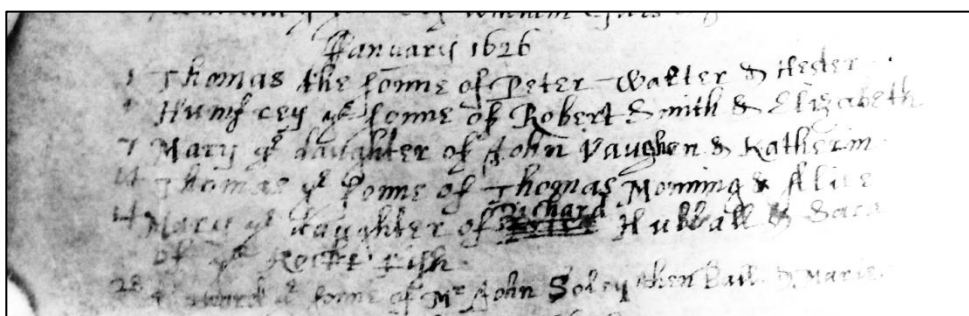 January 1626
1 Thomas the sonne of Peter Walter & Hester
Humfrey ye sonne of Robert Smith & Elizabeth
7 Mary ye daughter of John Vaughen & Katherin
14 Thomas ye sonne of Thomas Morning & Alice
14 Mary ye daughter of Richard Hubball & Sara
of ye
28 Edward ye sonne of Mr John Soley then Bail. & Marie